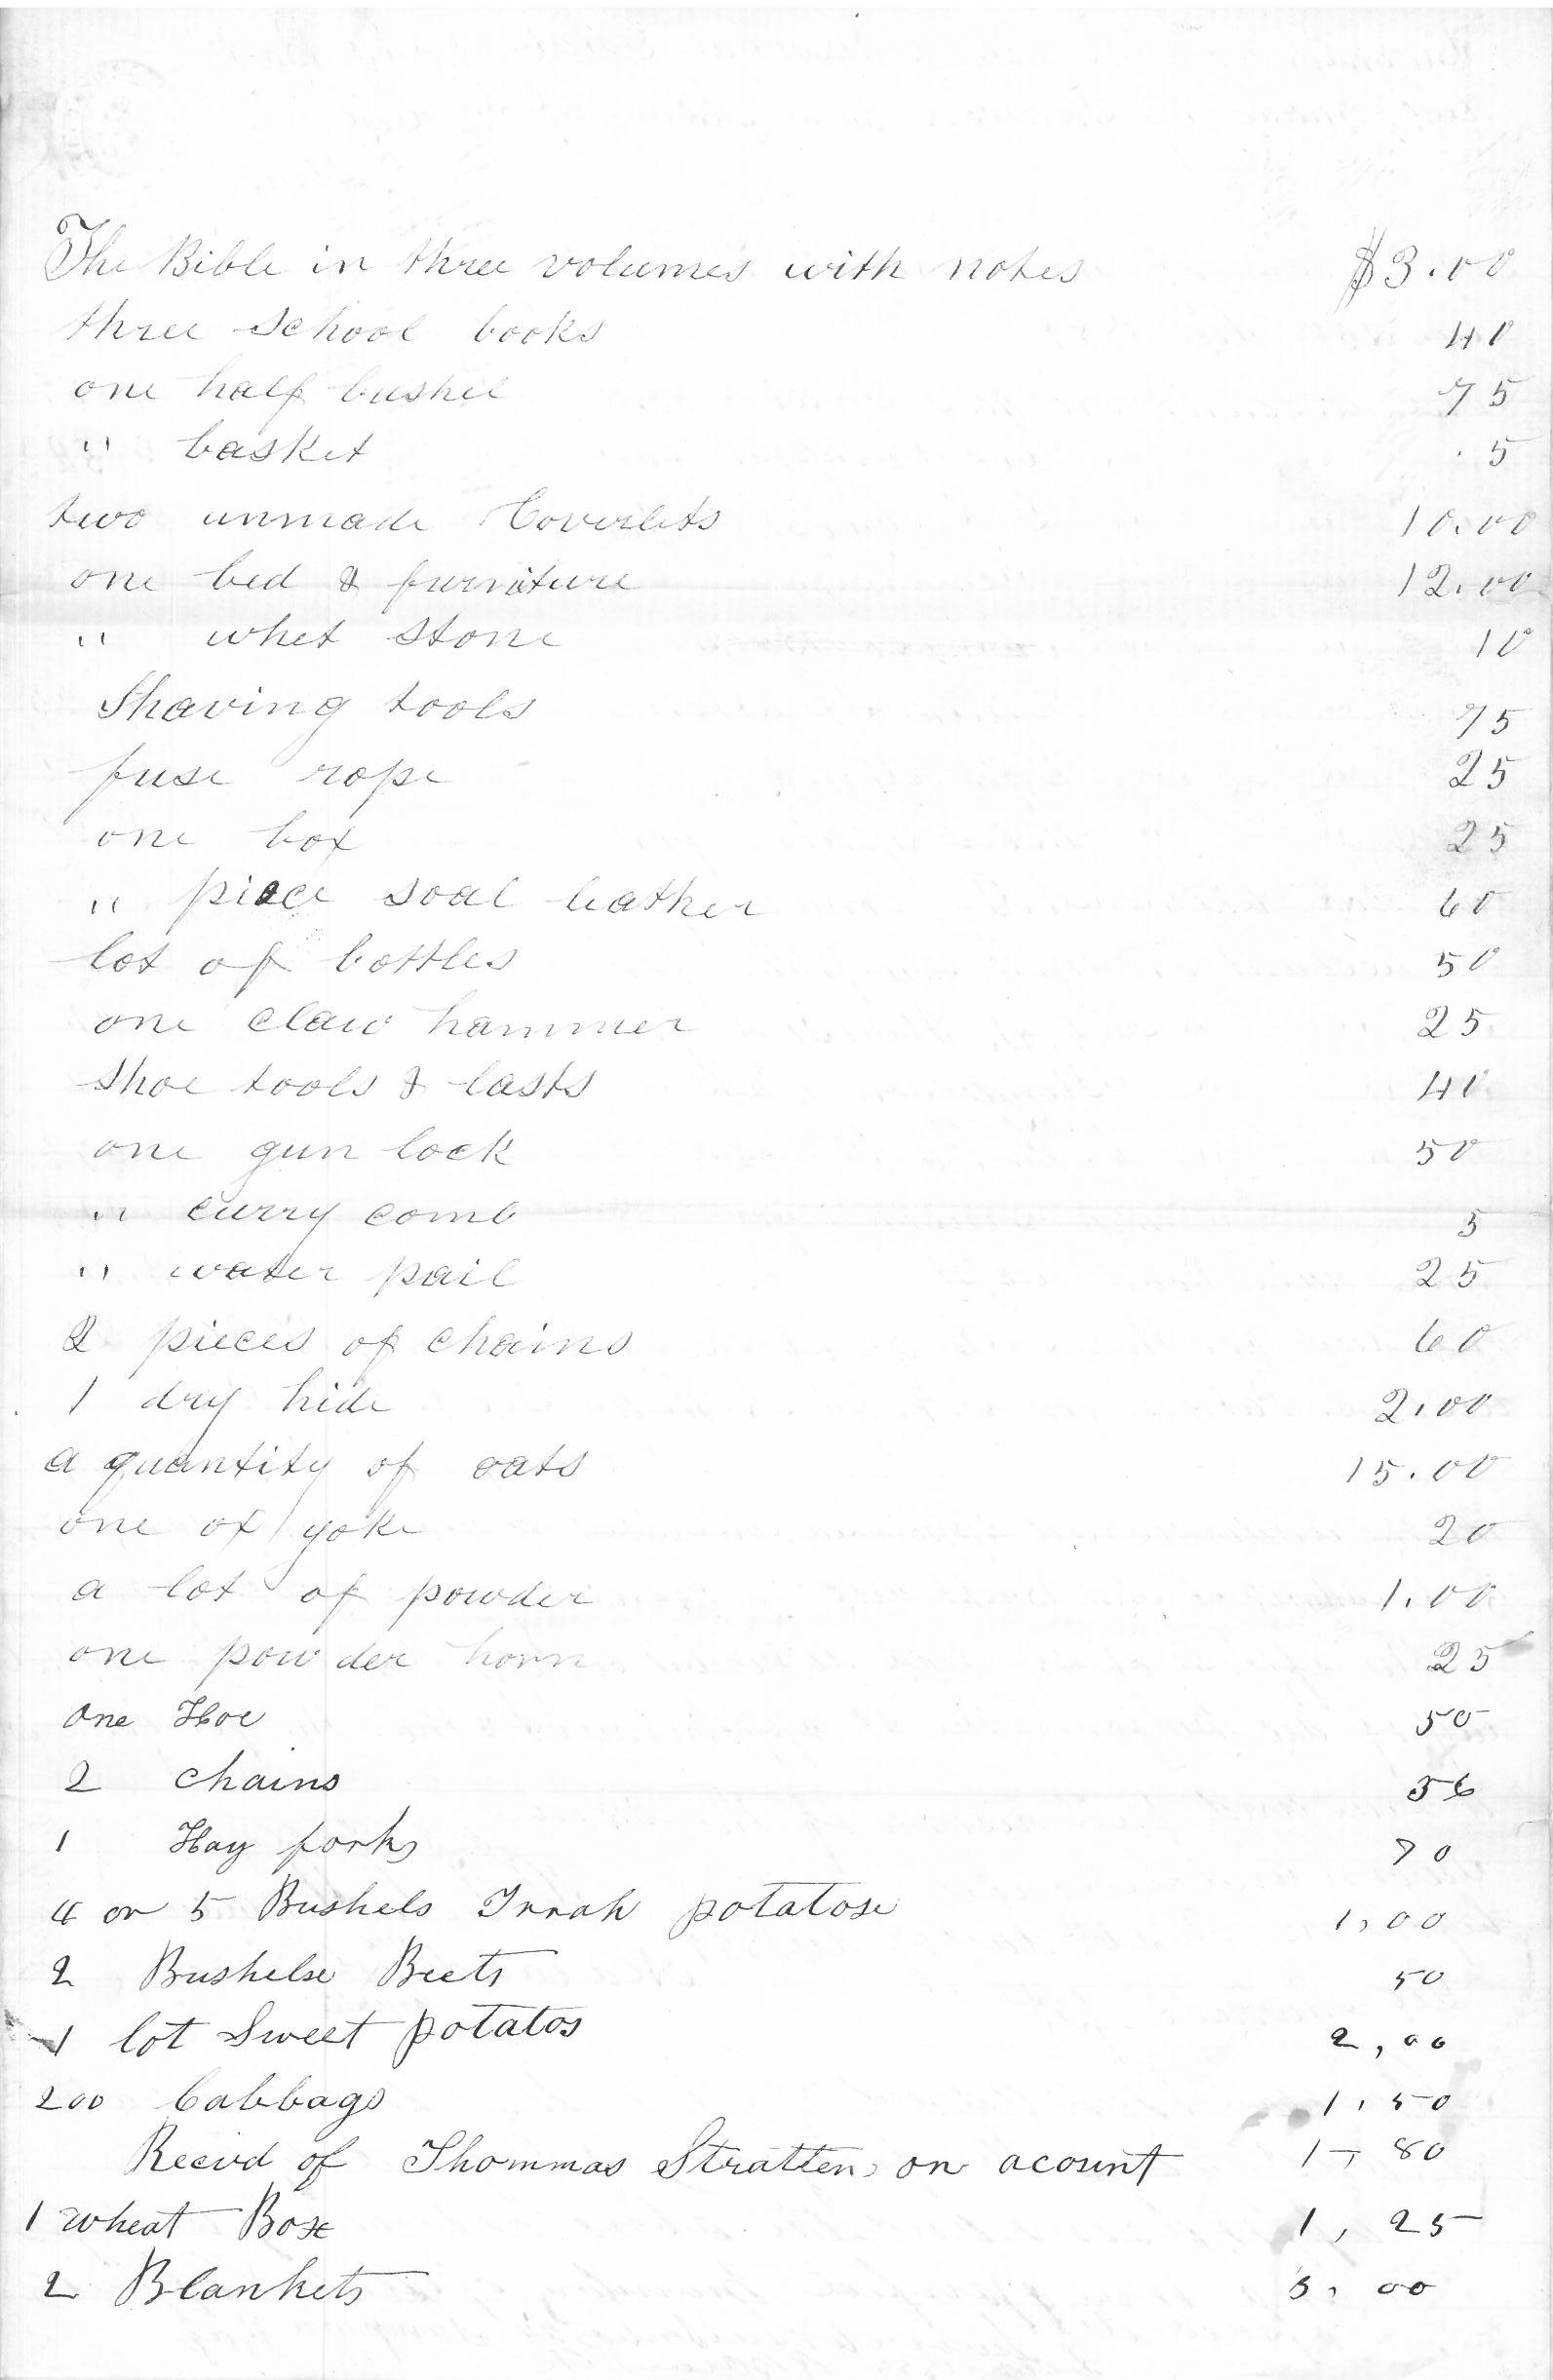 The Bible in three volumes with notes $3.00
three school books 40
one half bushel 75
" basket .5
two unmade Coverlets 10.00
one bed & furniture 12.00
" whet stone 10
Shaving tools 75
fuse rope 25
one box 25
" piece soal leather 60
lot of bottles 50
one claw hammer 25
shoe tools & lasts 40
one gun lock 50
" curry comb 5
" water pail 25
2 pieces of chains 60
1 dry hide 2.00
a quantity of oats 15.00
one ox yoke 20
a lot of powder 1.00
one powder horn 25
one Hoe 50
2 chains
1 Hay forks 70
4 or 5 Bushels potatose 1,00
2 Bushelse Beets 50
1 lot Sweet potatos 2,00
200 Cabbags 1,50
Recivd of Thommas Stratten on acount 1,80
1 Wheat Box 1,25
2 Blankets 00